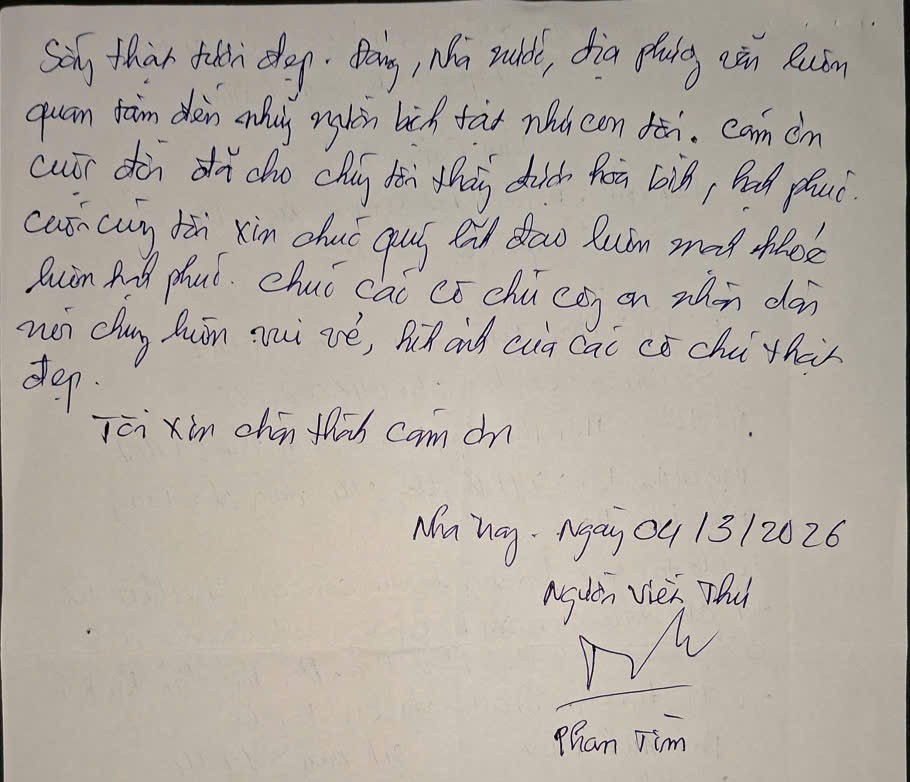 Sống thật tươi đẹp. Đảng, nhà nước, địa phương vẫn luôn
quan tâm đến những người bệnh tật như con tôi. Cám ơn
cuộc đời đã cho chúng tôi thấy được hòa bình, hạnh phúc.
Cuối cùng tôi xin chúc quý lãnh đạo luôn mạnh khỏe
luôn hạnh phúc. Chúc các cô chú công an nhân dân
nói chung luôn vui vẻ, hình ảnh của các cô chú thật
đẹp.
Tôi xin chân thành cám ơn
Nha Trang. Ngày 04/3/2026
Người viết Thư
Phan Tím